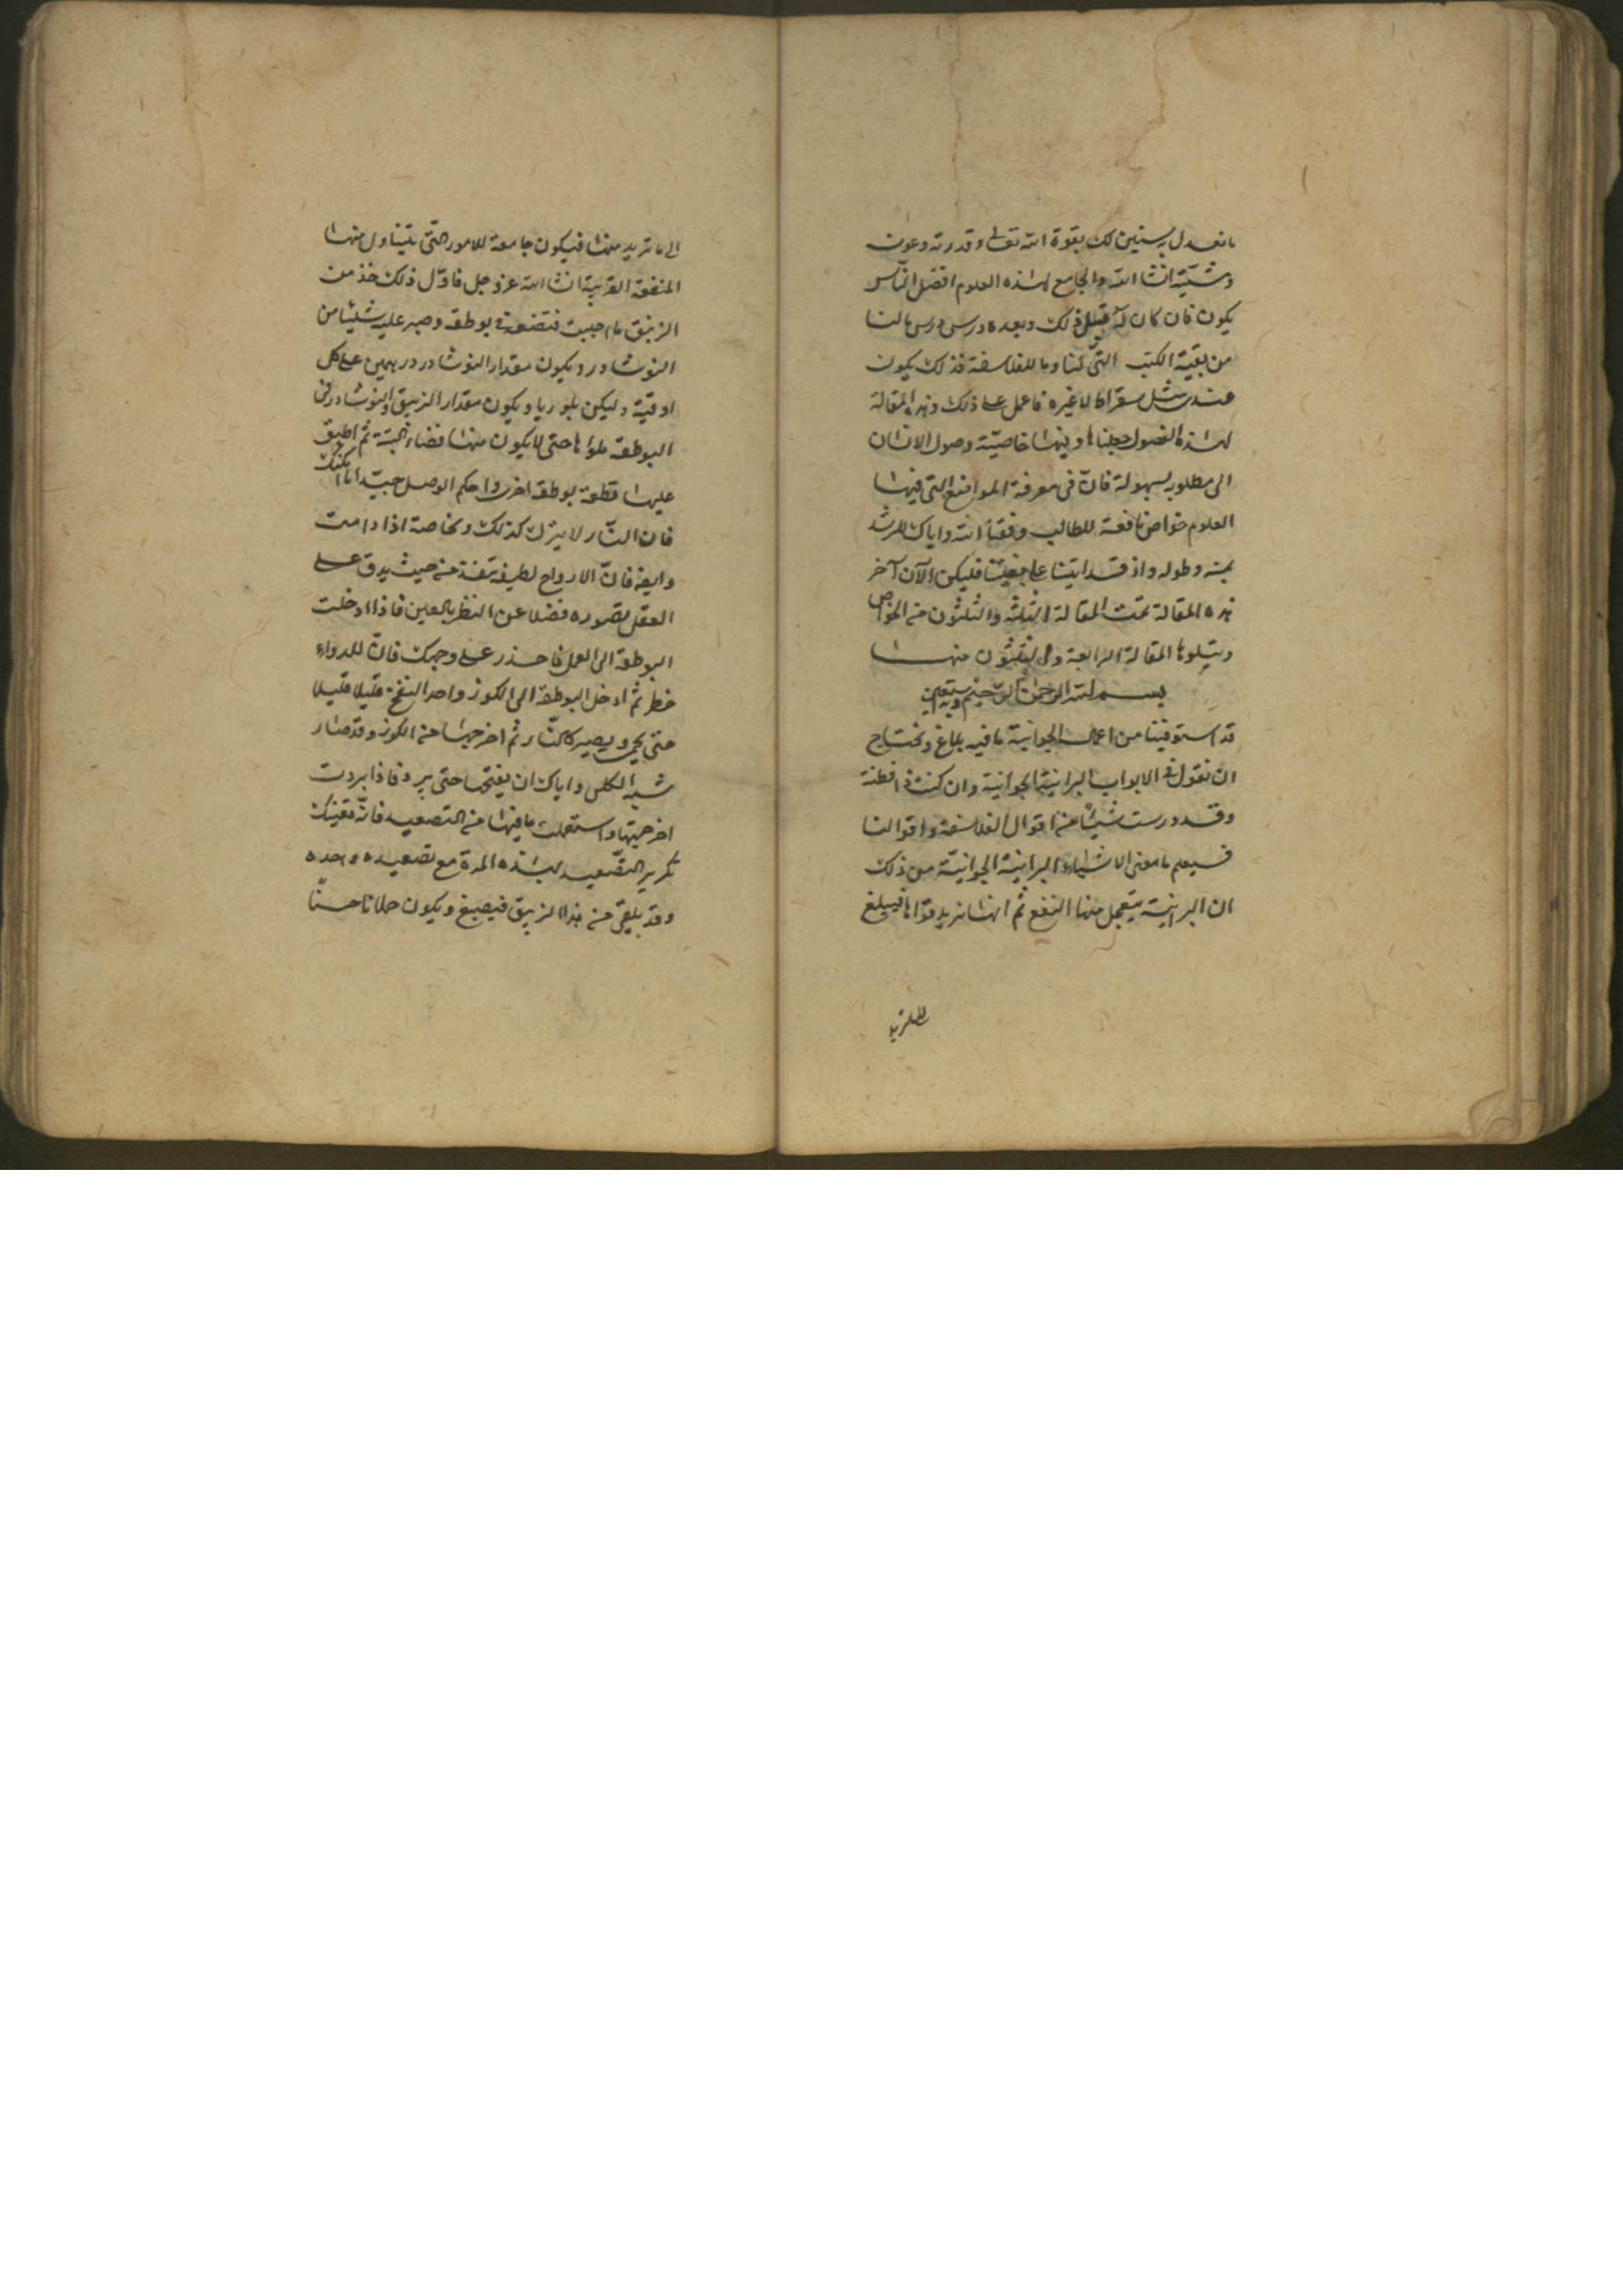 ما نعدل به سنين لك بقوة الله تعالى وقدرته وعون
ومشيّته انشا الله والجامع لهذه العلوم افضل النّاس
يكون فان كان له قبل ذلك وبعده درس درس مالنا
من بقيّة الكتب التّى لنا وما للفلاسفة فذلك يكون
عندى مثل سقراط لا غيره فاعمل على ذلك وهذه المقالة
لهذه الفصول جعلناها وفيها خاصيّة وصول الانسان
الى مطلوبه بسهولة فانّ فى معرفة المواضع التى فيها
العلوم خواص نافعة للطالب وفقنا الله واياك للرشد
بمنه وطوله واذ قد اتينا على فليكن الآن آخر
هذه المقالة تمّت المقالة الثلثه والثلثون من الخواص
ويتلوها المقالة الرابعة والثلثون منها
بسم الله الرحمن الرّحيم وبه نستعين
قد استوفينا من اعمال الجوانية ما فيه بلاغ ونحتاج
ان نقول فى الابواب البرانية الجوانية وان كنت ذا فطنة
وقد درست شيئًا من اقوال الفلاسفة واقوالنا
فسيعلم ما معنى الاشياء البرانية الجوانيّة من ذلك
ان البرانية يتعجل منها النفع ثم انها نريد قواها فيبلغ
الى ما تريد
الى ما تريد منها فيكون جامعة للامور التّى يتناول منها
المنفعة القريبة انشا الله عز وجل فاوّل ذلك خذ من
الزيبق ما احببت فتضعه فى بوطقه وصير عليه شيئا من
النوشادر ويكون مقدار النوشادر درهمين على كل
اوقيّة وليكن بلوريا ويكون مقدار الزيبق والنوشادر فى
البوطقة ملواها حتى لا يكون منها فضاء البتة ثم اطبق
عليها قطعة بوطقه اخرى واحكم الوصل جيّدا ما امكنك
فان النّار لا يترك كذلك وبخاصة اذا دامت
وايضا فانّ الارواح لطيفة تنفذ من حيث يدق على
العقل تصوره فضلا عن النظر بالعين فاذا ادخلت
البوطقة الى العمل فاحذر على وجهك فانّ للدواء
خطر ثم ادخل البوطقة الى الكوز واحد النفخ قليلا قليلا
حتى يحمى ويصير كالنّار ثم اخرجها من الكوز وقد صار
شبه الكلس واياك ان يفتحها حتى يبرد فاذا بردت
اخرجتها واستعملت ما فيها من التصعيد فانّه يغنيك
تكرير التّصعيد بهذه المرة مع تصعيده وحده
وقد يلقى من هذا الزيبق فيصبغ ويكون حلانا حسنًا